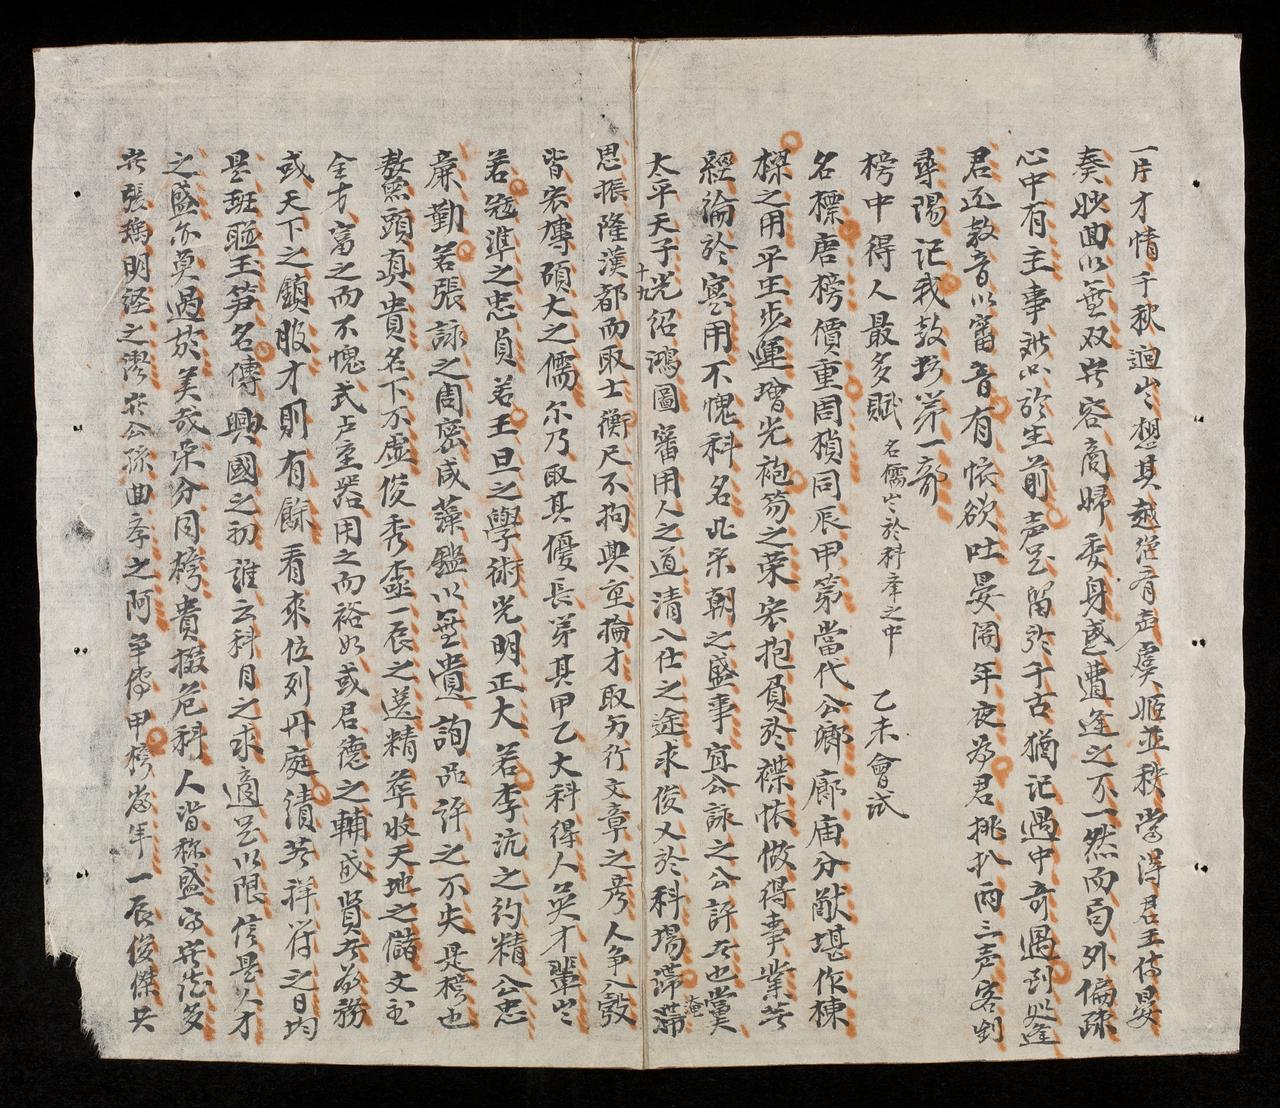 一片才情千秋迴出想其越從有声虞姬並秩當淂君王侍晏
奏妙曲以無双出容商婦委身感遭逢之不一然而局外偏疎
心中有主事於生前声名留於千古猶记遇中奇遇到此逢
君还教音以審音有懷欲吐晏阔年夜为君挑扒兩三声客到
尋陽记我敲打第一部
榜中得人最多賦 名儒出於科塲之中 乙未會試
名標唐榜價重周楨同辰甲第當代公卿廊庙分猷堪作棟
樑之用平生步運增光袍笏之荣宏抱負於襟懷做得事業苦
經論於寔用不愧科名此宋朝之盛事寔公詠之公許者也黨
太平天子十九光绍鴻圖審用人之道清入仕之途求俊乂於科場滞淹
思振隆漢都而取士衡尺不拘典重掄才取另行文章之彦人争入彀
皆宏博碩大之儒尔乃取其優長弟其甲乙大科得人英才輩出
若寇準之忠貞若王旦之學術光明正大若李沆之约精公忠
廉勤若張詠之周密咸藻鑑以無遺詢品評之不失是榜也
鰲头頭真貴名下不虛俊秀盍一辰之选精華收天地之儲文章
全才富之而不愧式占重器用之而裕如或君德之輔成賢者務
或天下之鎮服才則有餘看來位列丹庭績著祥符之日均
是班聯玉笋名傳興國之初誰云科目之求適足以限信是人才
之盛亦莫過於美哉荣分同榜貴掇危科人皆称盛
張為明経之謬於公孫曲序之阿争傳甲榜當年一辰俊傑共